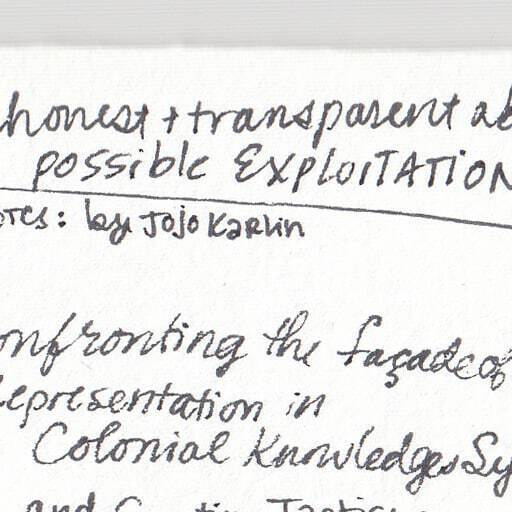 honest + transparent ab
possible EXPLOITATION
OTES: by JoJo Karlin
onfronting the façade of
Representation in
Colonial Knowledges Sy
and